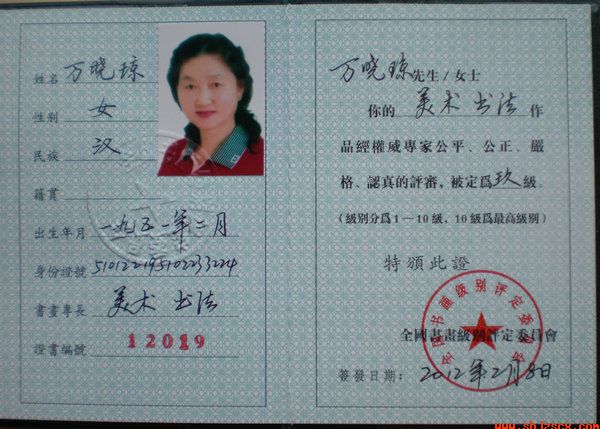 姓名 万晓琼
性别 女
民族 汉
籍貫
出生年月 一九五一年二月
身份證號 510122195102233224
書畫專長 美术 书法
證書編號 12019
万晓琼 先生/女士
你的 美术 书法 作
品經權威專家公平、公正、嚴
格、認真的評審，被定爲玖級。
（級別分爲1—10級，10級爲最高級別）
特頒此證
全國書畫級別評定委員會
簽發日期：2012年2月8日
全国书画级别评定委员会